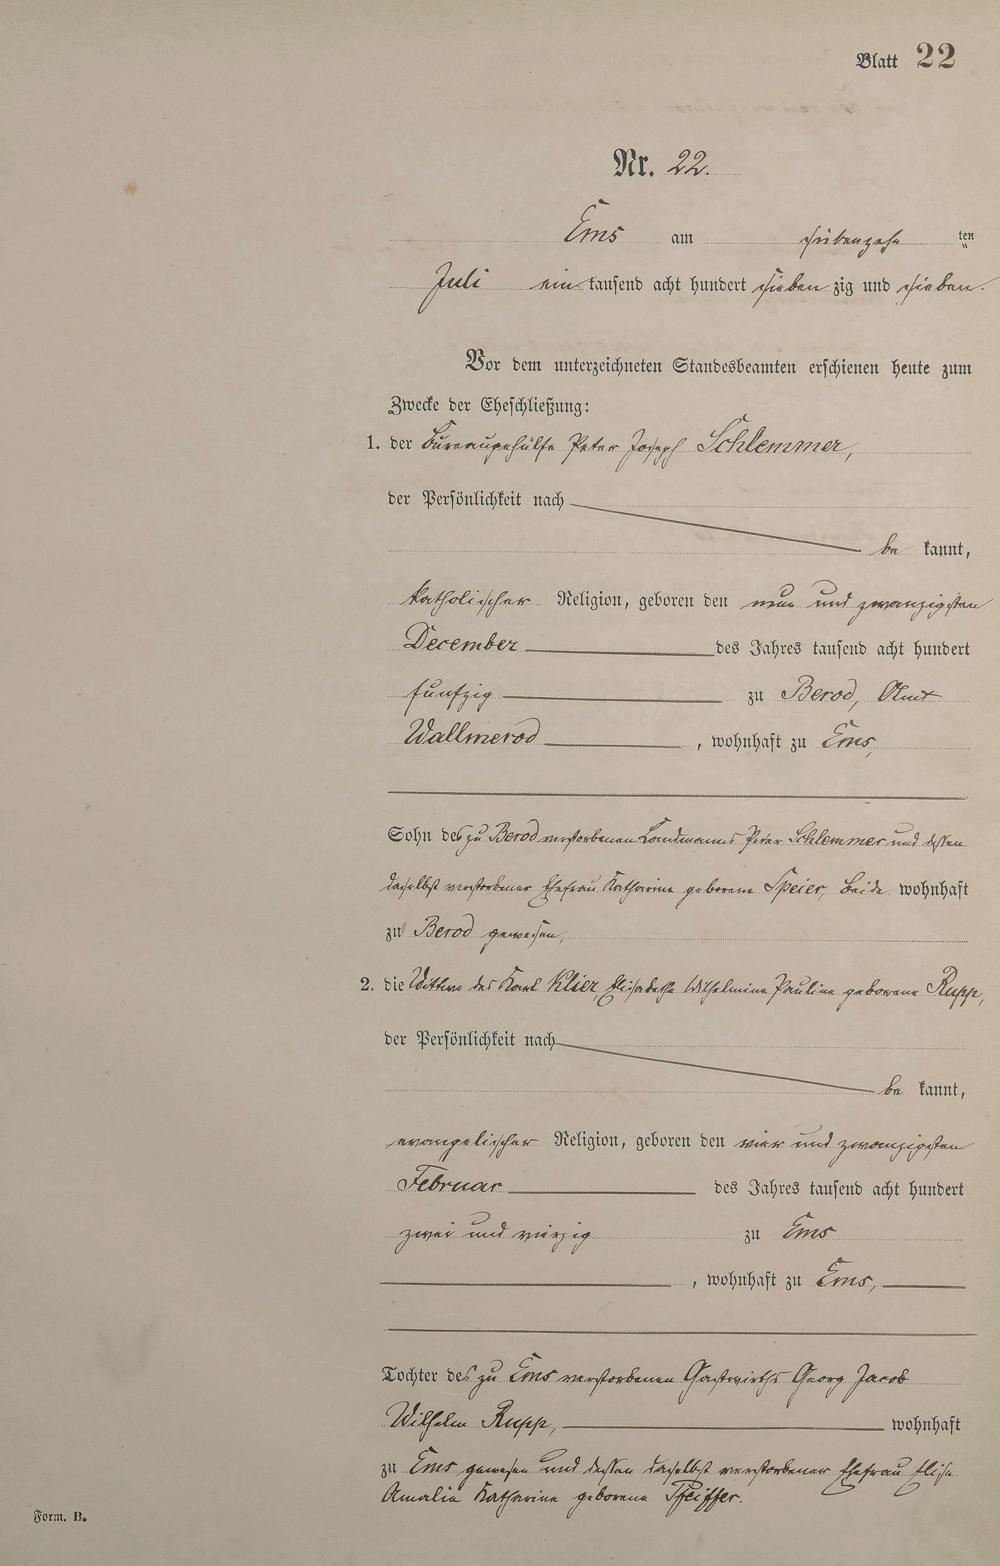 Blatt 22
Nr. 22.
Ems am siebenzehn ten
Juli ein tausend acht hundert sieben zig und sieben.
Vor dem unterzeichneten Standesbeamten erschienen heute zum
Zwecke der Eheschließung:
1. der Bureaugehülfe Peter Joseph Schlemmer,
der Persönlichkeit nach
be kannt,
katholischer Religion, geboren den neun und zwanzigsten
December des Jahres tausend acht hundert
funfzig zu Berod, Amt
Wallmerod, wohnhaft zu Ems,
Sohn des zu Berod verstorbenen Landmanns Peter Schlemmer und dessen
daselbst verstorbener Ehefrau Katharine geborene Speier, beide wohnhaft
zu Berod gewesen,
2. die Wittwe des Karl Klier, Elisabethe Wilhelmine Pauline geborene Rupp,
der Persönlichkeit nach
be kannt,
evangelischer Religion, geboren den vier und zwanzigsten
Februar des Jahres tausend acht hundert
zwei und vierzig zu Ems
, wohnhaft zu Ems,
Tochter des zu Ems verstorbenen Gastwirths Georg Jacob
Wilhelm Rupp, wohnhaft
zu Ems gewesen und dessen daselbst verstorbener Ehefrau Elise
Amalia Katharine geborene Pfeiffer.
Form. B.